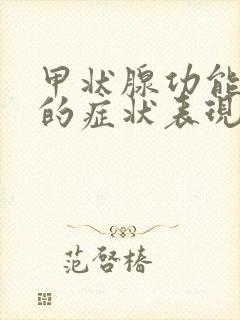 甲状腺功能
的症状表现
范啓椿